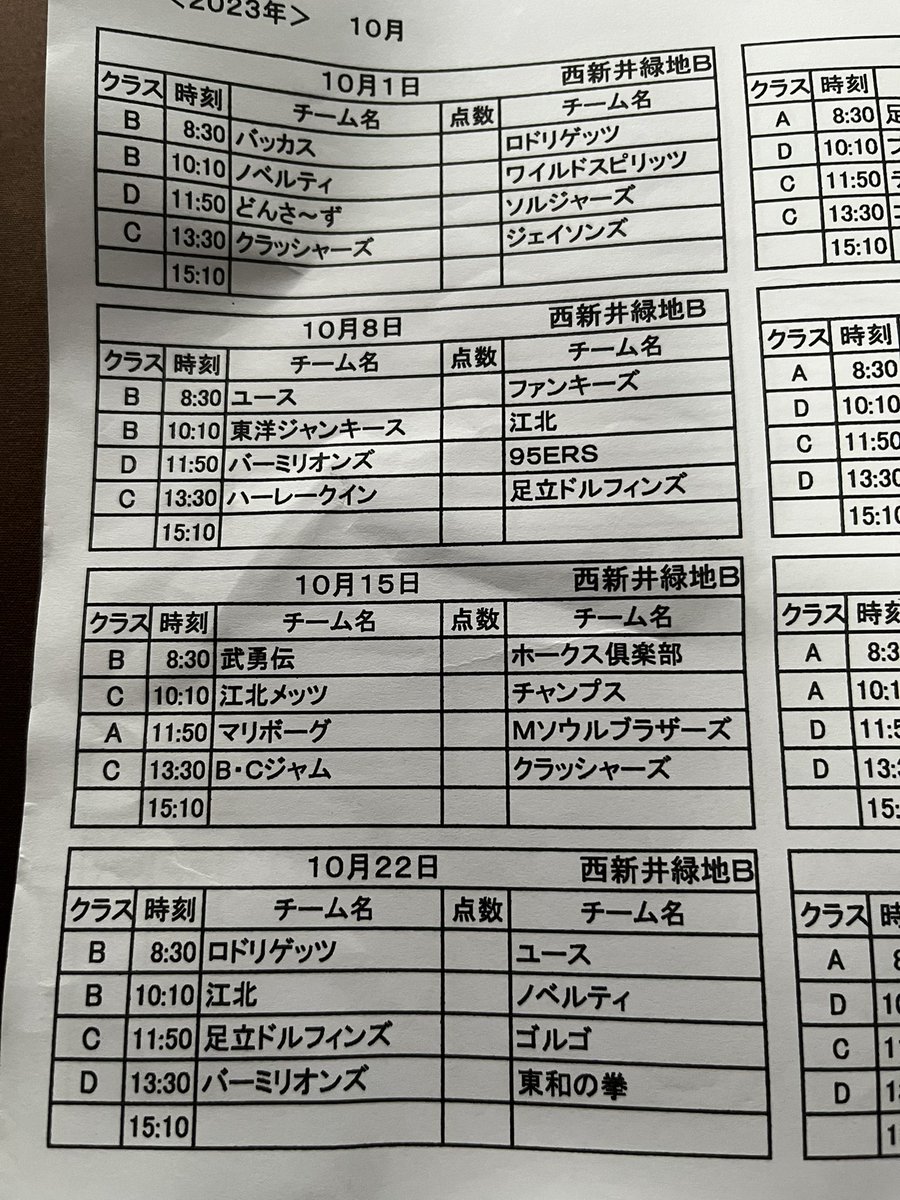 <2023年> 10月
10月1日 西新井緑地B
クラス 時刻 チーム名 点数 チーム名
B 8:30 バッカス ロドリゲッツ
B 10:10 ノベルティ ワイルドスピリッツ
D 11:50 どんさ～ず ソルジャーズ
C 13:30 クラッシャーズ ジェイソンズ
15:10
クラス 時刻
A 8:30
D 10:10
C 11:50
C 13:30
15:10
10月8日 西新井緑地B
クラス 時刻 チーム名 点数 チーム名
B 8:30 ユース ファンキーズ
B 10:10 東洋ジャンキース 江北
D 11:50 バーミリオンズ 95ERS
C 13:30 ハーレークイン 足立ドルフィンズ
15:10
クラス 時刻
A 8:30
D 10:10
C 11:50
D 13:30
15:10
10月15日 西新井緑地B
クラス 時刻 チーム名 点数 チーム名
B 8:30 武勇伝 ホークス倶楽部
C 10:10 江北メッツ チャンプス
A 11:50 マリボーグ Mソウルブラザーズ
C 13:30 B・Cジャム クラッシャーズ
15:10
クラス 時刻
A
A
D
D
10月22日 西新井緑地B
クラス 時刻 チーム名 点数 チーム名
B 8:30 ロドリゲッツ ユース
B 10:10 江北 ノベルティ
C 11:50 足立ドルフィンズ ゴルゴ
D 13:30 バーミリオンズ 東和の拳
15:10
クラス
A
D
C
D